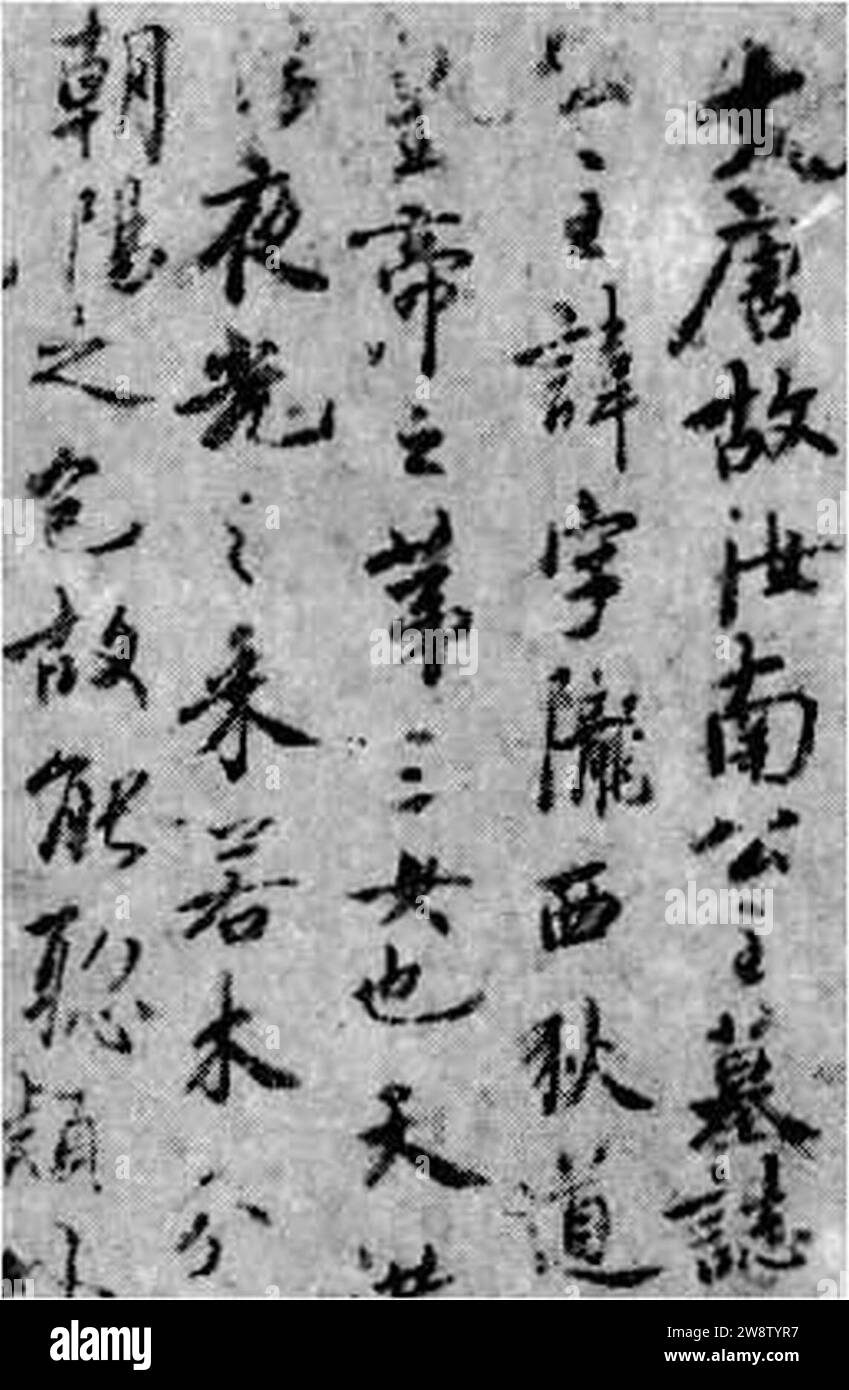 大唐故汝南公主墓誌
公主諱字隴西狄道
皇帝之第三女也天
浮夜光之采若木分
朝陽之色故能聰穎外
alamy
alamy
Image ID: 2W8TYR7
www.alamy.com